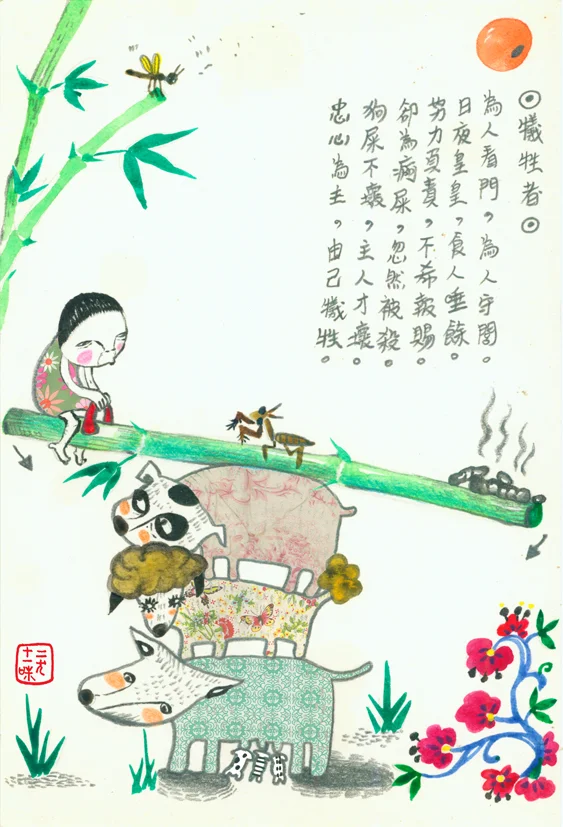 ◎犧牲者◎
為人看門，為人守閭。
日夜皇皇，食人唾餘。
努力負責，不希報賜。
卻為痾屎，忽然被殺。
狗屎不壞，主人才壞。
忠心為主，由己犧牲。